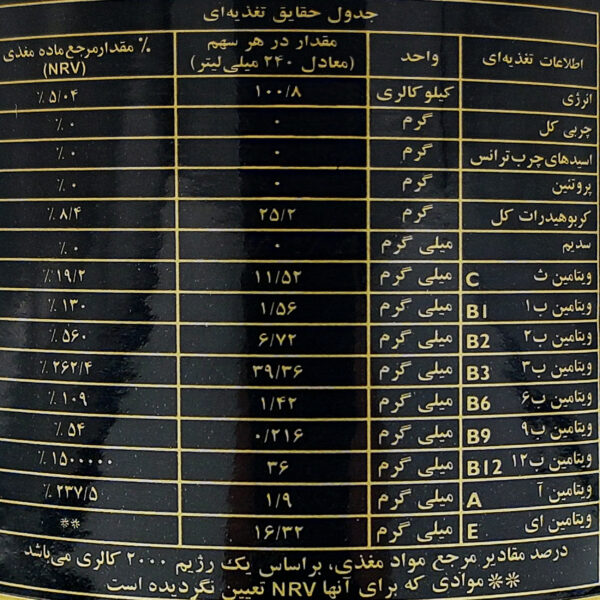 جدول حقایق تغذیه‌ای
اطلاعات تغذیه‌ای واحد مقدار در هر سهم (معادل ۲۴۰ میلی لیتر) % مقدارمرجع ماده مغذی (NRV)
انرژی کیلوکالری ۱۰۰/۸ ۵/۰۴ ٪
چربی کل گرم ۰ ۰ ٪
اسیدهای چرب ترانس گرم ۰ ۰ ٪
پروتئین گرم ۰ ۰ ٪
کربوهیدرات کل گرم ۲۵/۲ ۸/۴ ٪
سدیم میلی گرم ۰ ۰ ٪
ویتامین ث C میلی گرم ۱۱/۵۲ ۱۹/۲ ٪
ویتامین ب۱ B1 میلی گرم ۱/۵۶ ۱۳۰ ٪
ویتامین ب۲ B2 میلی گرم ۶/۷۲ ۵۶۰ ٪
ویتامین ب۳ B3 میلی گرم ۳۹/۳۶ ۲۶۲/۴ ٪
ویتامین ب۶ B6 میلی گرم ۱/۴۲ ۱۰۹ ٪
ویتامین ب۹ B9 میلی گرم ۰/۲۱۶ ۵۴ ٪
ویتامین ب۱۲ B12 میلی گرم ۳۶ ۱۵۰۰۰۰۰ ٪
ویتامین آ A میلی گرم ۱/۹ ۲۳۷/۵ ٪
ویتامین ای E میلی گرم ۱۶/۳۲ **
درصد مقادیر مرجع مواد مغذی، براساس یک رژیم ۲۰۰۰ کالری می‌باشد
** موادی که برای آنها NRV تعیین نگردیده است